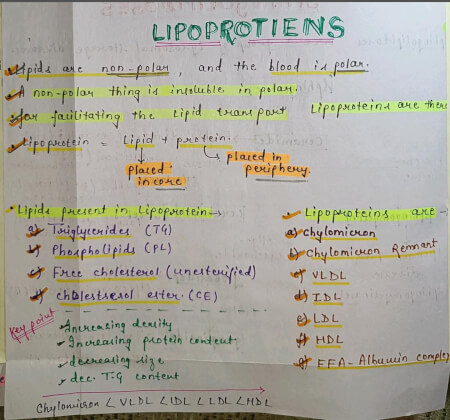 LIPOPROTIENS
Lipids are non-polar, and the blood is polar.
A non-polar thing is insoluble in polar.
for facilitating the Lipid transport Lipoproteins are there
Lipoprotein = Lipid + protein.
placed in core
placed in periphery.
Lipids present in Lipoprotein →
a) Triglycerides (TG)
b) Phospholipids (PL)
c) Free cholesterol (unesterified)
d) cholesterol ester. (CE)
Key point
Increasing density
Increasing protein content
decreasing size
dec. T.G content
Chylomicron < VLDL < IDL < LDL < HDL
Lipoproteins are -
a) Chylomicron
b) Chylomicron Remnant
c) VLDL
d) IDL
e) LDL
f) HDL
g) FFA-Albumin complex